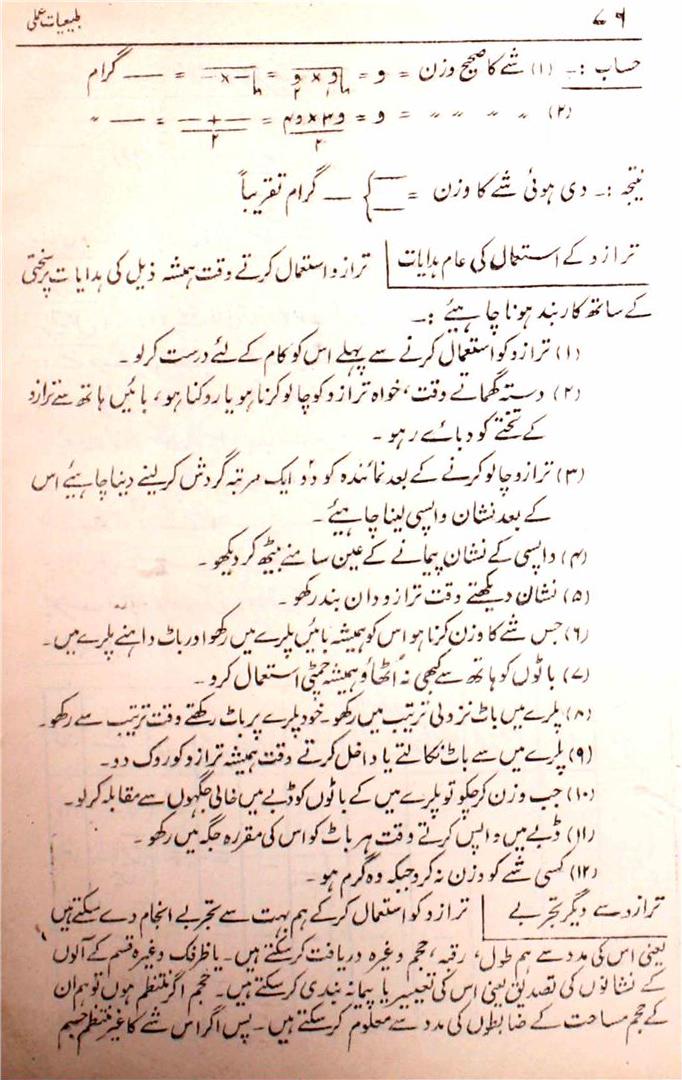 ۷۹ طبیعیات عملی
حساب :۔ (۱) شے کا صحیح وزن = و = √و₁ × و₂ = √— × — = — گرام
(۲) " " " " = و = و۳ × و۴ / ۲ = — + — / ۲ = — "
نتیجہ :۔ دی ہوئی شے کا وزن = { — گرام تقریباً
ترازو کے استعمال کی عام ہدایات | ترازو استعمال کرتے وقت ہمیشہ ذیل کی ہدایات پر سختی
کے ساتھ کاربند ہونا چاہیئے :۔
(۱) ترازو کو استعمال کرنے سے پہلے اس کو کام کے لئے درست کرلو ۔
(۲) دستہ گھماتے وقت، خواہ ترازو کو چالو کرنا ہو یا روکنا ہو، بائیں ہاتھ سے ترازو
کے تختے کو دبائے رہو ۔
(۳) ترازو چالو کرنے کے بعد نمائندہ کو دو ایک مرتبہ گردش کرلینے دینا چاہیئے اس
کے بعد نشان واپسی لینا چاہیئے ۔
(۴) واپسی کے نشان پیمانے کے عین سامنے بیٹھ کر دیکھو ۔
(۵) نشان دیکھتے وقت ترازو دان بند رکھو ۔
(۶) جس شے کا وزن کرنا ہو اس کو ہمیشہ بائیں پلڑے میں رکھو اور باٹ داہنے پلڑے میں۔
(۷) باٹوں کو ہاتھ سے کبھی نہ اُٹھاؤ ہمیشہ چمٹی استعمال کرو ۔
(۸) پلڑے میں باٹ نزولی ترتیب میں رکھو۔ خود پلڑے پر باٹ رکھتے وقت ترتیب سے رکھو۔
(۹) پلڑے میں سے باٹ نکالتے یا داخل کرتے وقت ہمیشہ ترازو کو روک دو۔
(۱۰) جب وزن کرچکو تو پلڑے میں کے باٹوں کو ڈبے میں خالی جگہوں سے مقابلہ کرلو۔
(۱۱) ڈبے میں واپس کرتے وقت ہر باٹ کو اس کی مقررہ جگہ میں رکھو ۔
(۱۲) کسی شے کو وزن نہ کرو جبکہ وہ گرم ہو ۔
ترازو سے دیگر تجربے | ترازو کو استعمال کرکے ہم بہت سے تجربے انجام دے سکتے ہیں
یعنی اس کی مدد سے ہم طول، رقبہ، حجم وغیرہ دریافت کرسکتے ہیں۔ یا ظرفک وغیرہ قسم کے آلوں
کے نشانوں کی تصدیق یعنی اس کی تعییر یا پیمانہ بندی کرسکتے ہیں۔ حجم اگر منتظم ہوں تو ہم ان
کے حجم مساحت کے ضابطوں کی مدد سے معلوم کرسکتے ہیں۔ پس اگر اس شے کا غیر منتظم جسم